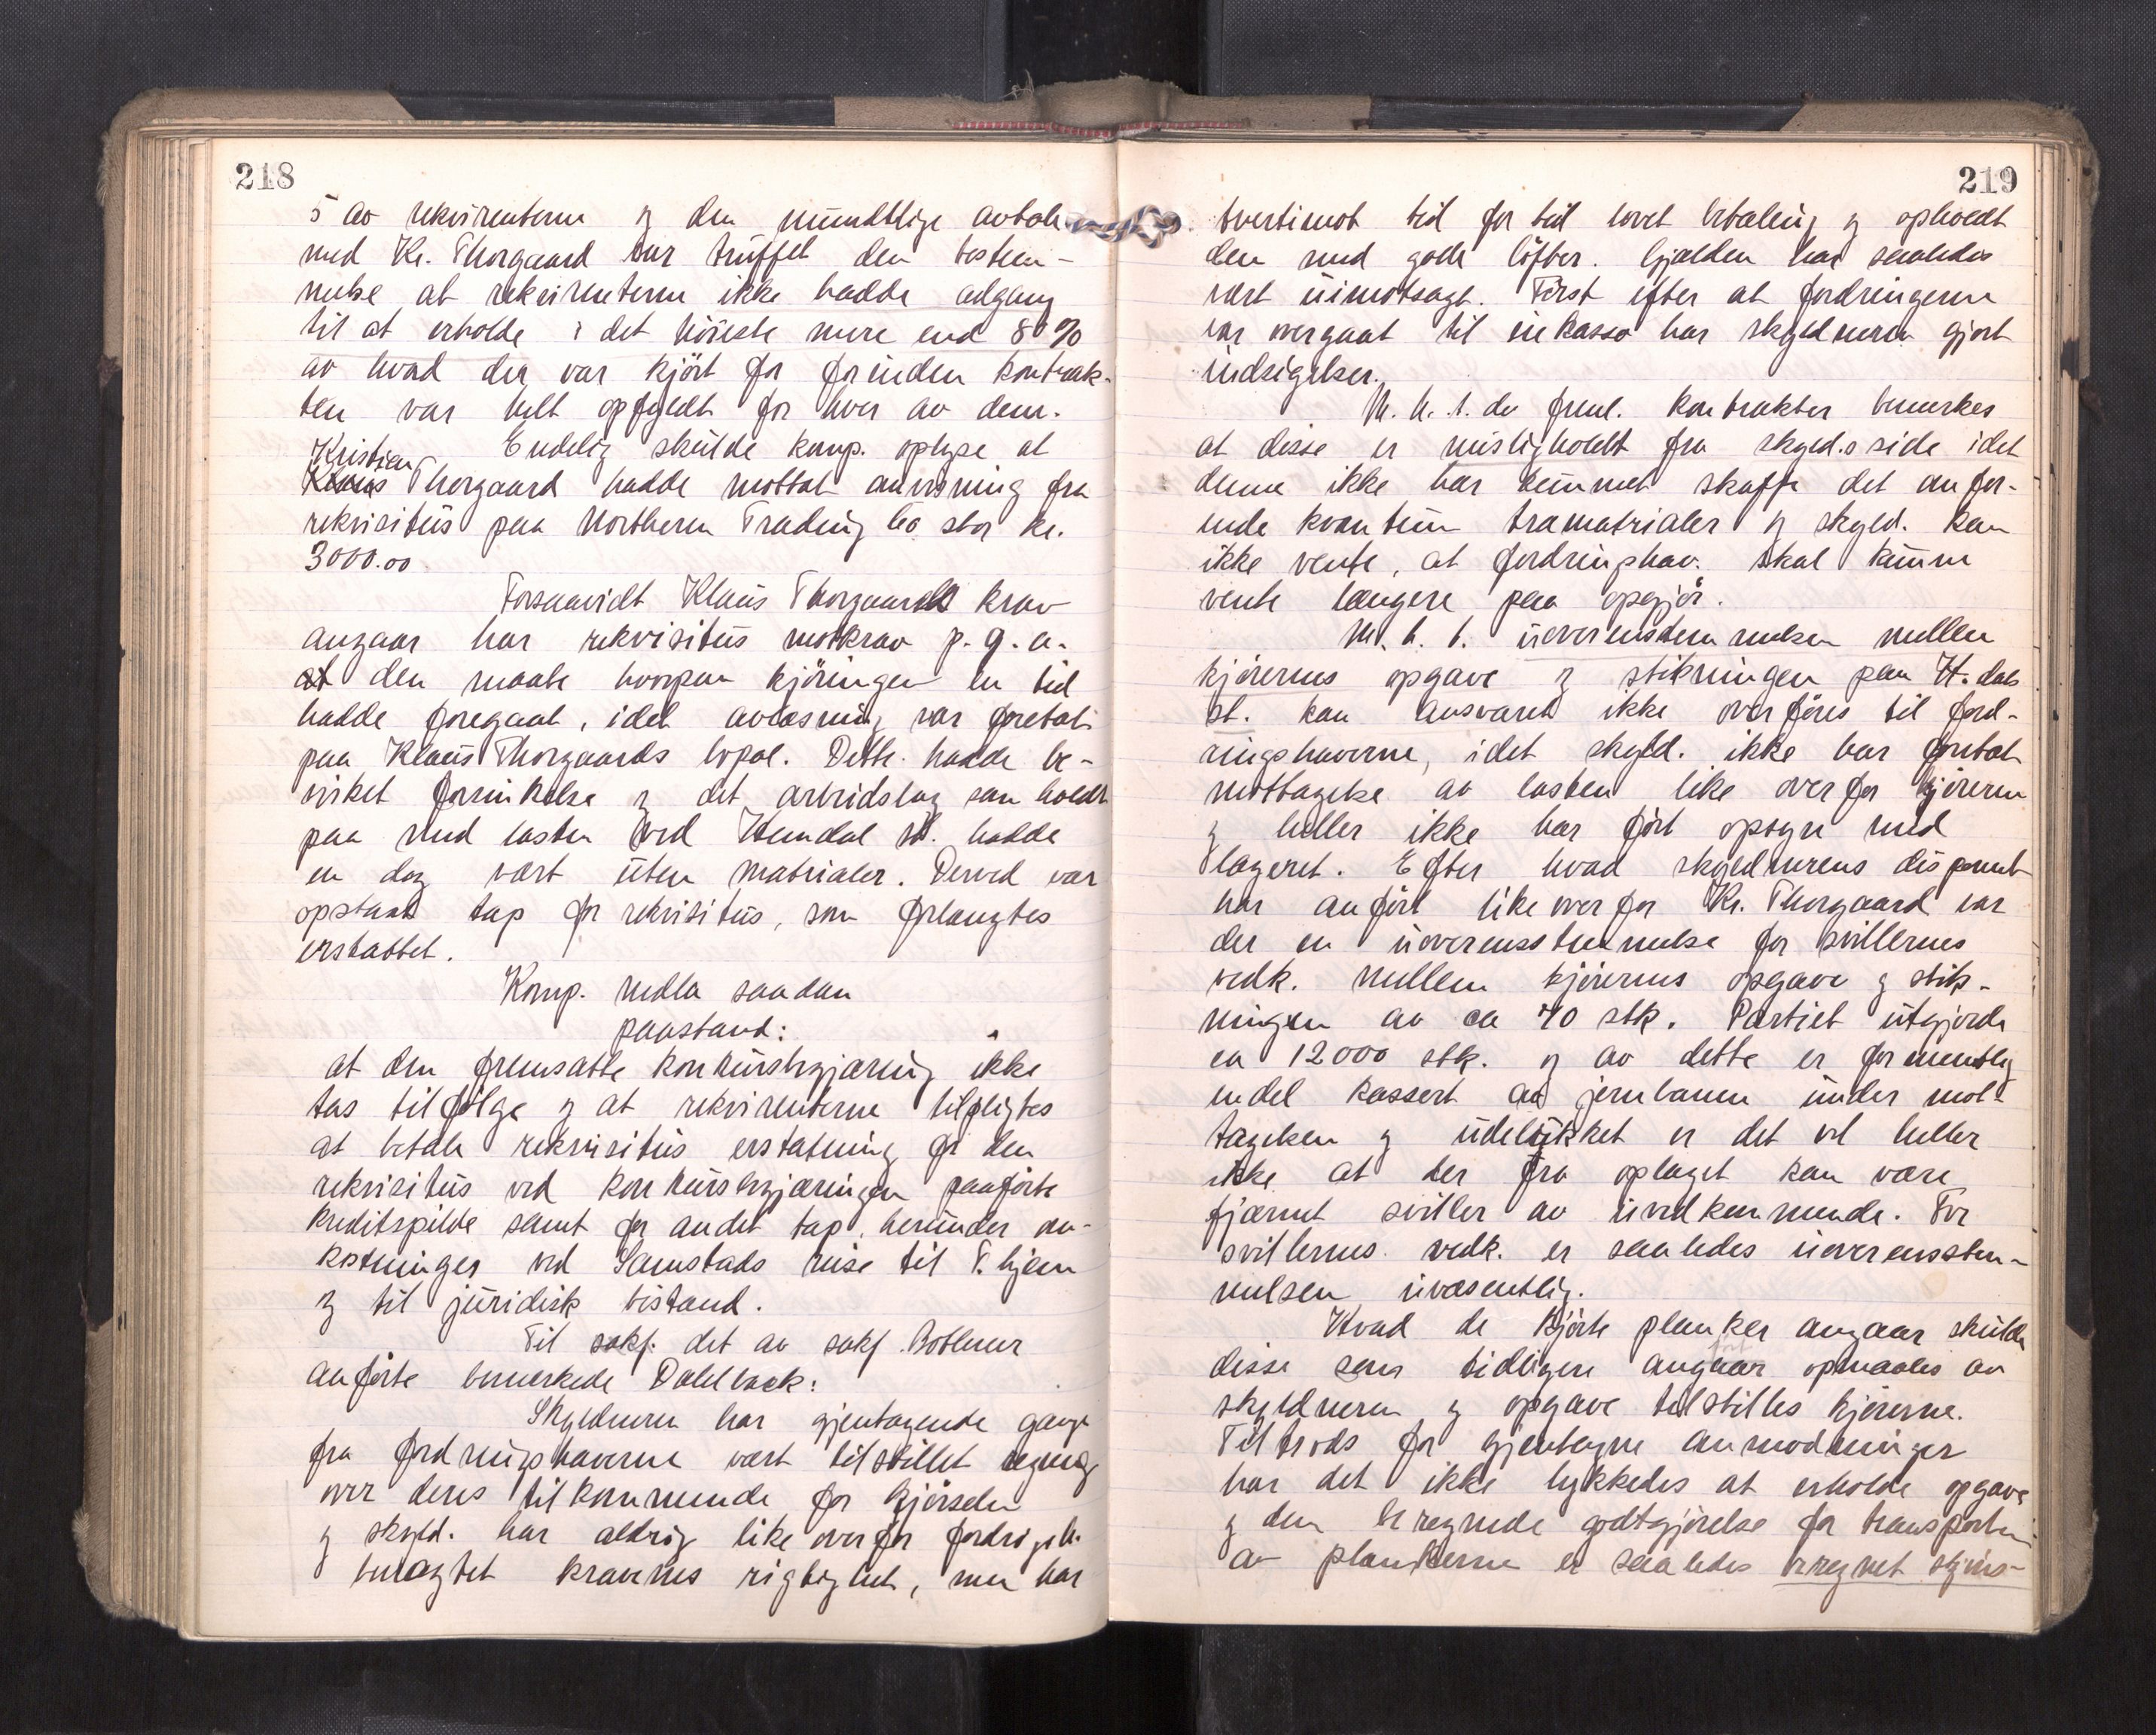 218
5 av rekvirenterne og den mundtlige avtale
med Kr. Thorgaard var truffet den bestem-
melse at rekvirenterne ikke hadde adgang
til at erholde i det höieste mere end 80%
av hvad der var kjört for forinden kontrak-
ten var helt opfyldt for hver av dem.
Endelig skulde komp. oplyse at
Kristian
Klaus Thorgaard hadde mottat anvisning fra
rekvisitus paa Northern Trading Co stor kr.
3000.00
Forsaavidt Klaus Thorgaards krav
angaar har rekvisitus motkrav p.g.a.
at den maate hvorpaa kjöringen en tid
hadde foregaat, idet avlæsning var foretat
paa Klaus Thorgaards bopæl. Dette hadde be-
virket forsinkelse og det arbeidslag som holdt
paa med lasten ved Heimdal st. hadde
en dag vært uten materialer. Derved var
opstaat tap for rekvisitus, som forlangtes
erstattet.
Komp. nedla saadan
paastand:
at den fremsatte konkursbegjæring ikke
tas tilfölge og at rekvirenterne tilpligtes
at betale rekvisitus erstatning for den
rekvisitus ved konkursbegjæringen paaförte
kreditspilde samt for andet tap, herunder om-
kostninger ved Samstads reise til T.hjem
og til juridisk bistand.
Til sakf. det av sakf. Bothner
anförte bemerkede Dahlback:
Skyldneren har gjentagende gange
fra fordringshaverne vært tilstillet regning
over deres tilkommende for kjörselen
og skyld. har aldrig likeoverfor fordrgsh.
benegtet kravenes rigtighet, men har
219
tvertimot tid for tid lovet betaling og opholdt
dem med gode löfter. Gjælden har saaledes
vært uimotsagt. Först efter at fordringerne
var overgaat til inkasso har skyldneren gjort
indsigelser.
M. h. t. de freml. kontrakter bemerkes
at disse er misligholdt fra skyld.s side idet
denne ikke har kunnet skaffe det anför-
ende kvantum trematrialer og skyld. kan
ikke vente, at fordringshav. skal kunne
vente længere paa opgjör.
M. h. t. uoverensstemmelsen mellem
kjörernes opgave og stikningen paa H.dals
st. kan ansvaret ikke overföres til ford-
ringshaverne, idet skyld. ikke har foretat
mottagelse av lasten like overfor kjörerne
og heller ikke har fört opsyn med
lageret. Efter hvad skyldnerens disponent
har anfört likeoverfor Kr. Thorgaard var
der en uoverensstemmelse for svillernes
vedk. mellem kjörernes opgave og stik-
ningen av ca 70 stk. Partiet utgjorde
ca 12000 stk. og av dette er formentlig
endel kassert av jernbanen under mot-
tagelsen og udelukket er det vel heller
ikke at der fra oplaget kan være
fjærnet sviller av uvedkommende. For
svillernes vedk. er saaledes uoverensstem-
melsen uvæsentlig.
Hvad de kjörte planker angaar skulde
disse som tidligere angaar opmaales av
skyldneren og opgave tilstilles kjörerne.
Tiltrods for gjentagne anmodninger
har det ikke lykkedes at erholde opgave
og den beregnede godtgjörelse for transporten
av plankerne er saaledes beregnet skjöns-